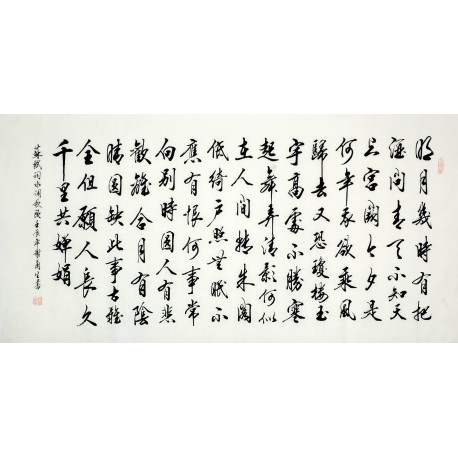 明月幾時有把
酒問青天不知天
上宮闕今夕是
何年我欲乘風
歸去又恐瓊樓玉
宇高處不勝寒
起舞弄清影何似
在人間轉朱閣
低綺戶照無眠不
應有恨何事常
向別時圓人有悲
歡離合月有陰
晴圓缺此事古難
全但願人長久
千里共嬋娟
蘇軾詞水調歌頭壬辰年